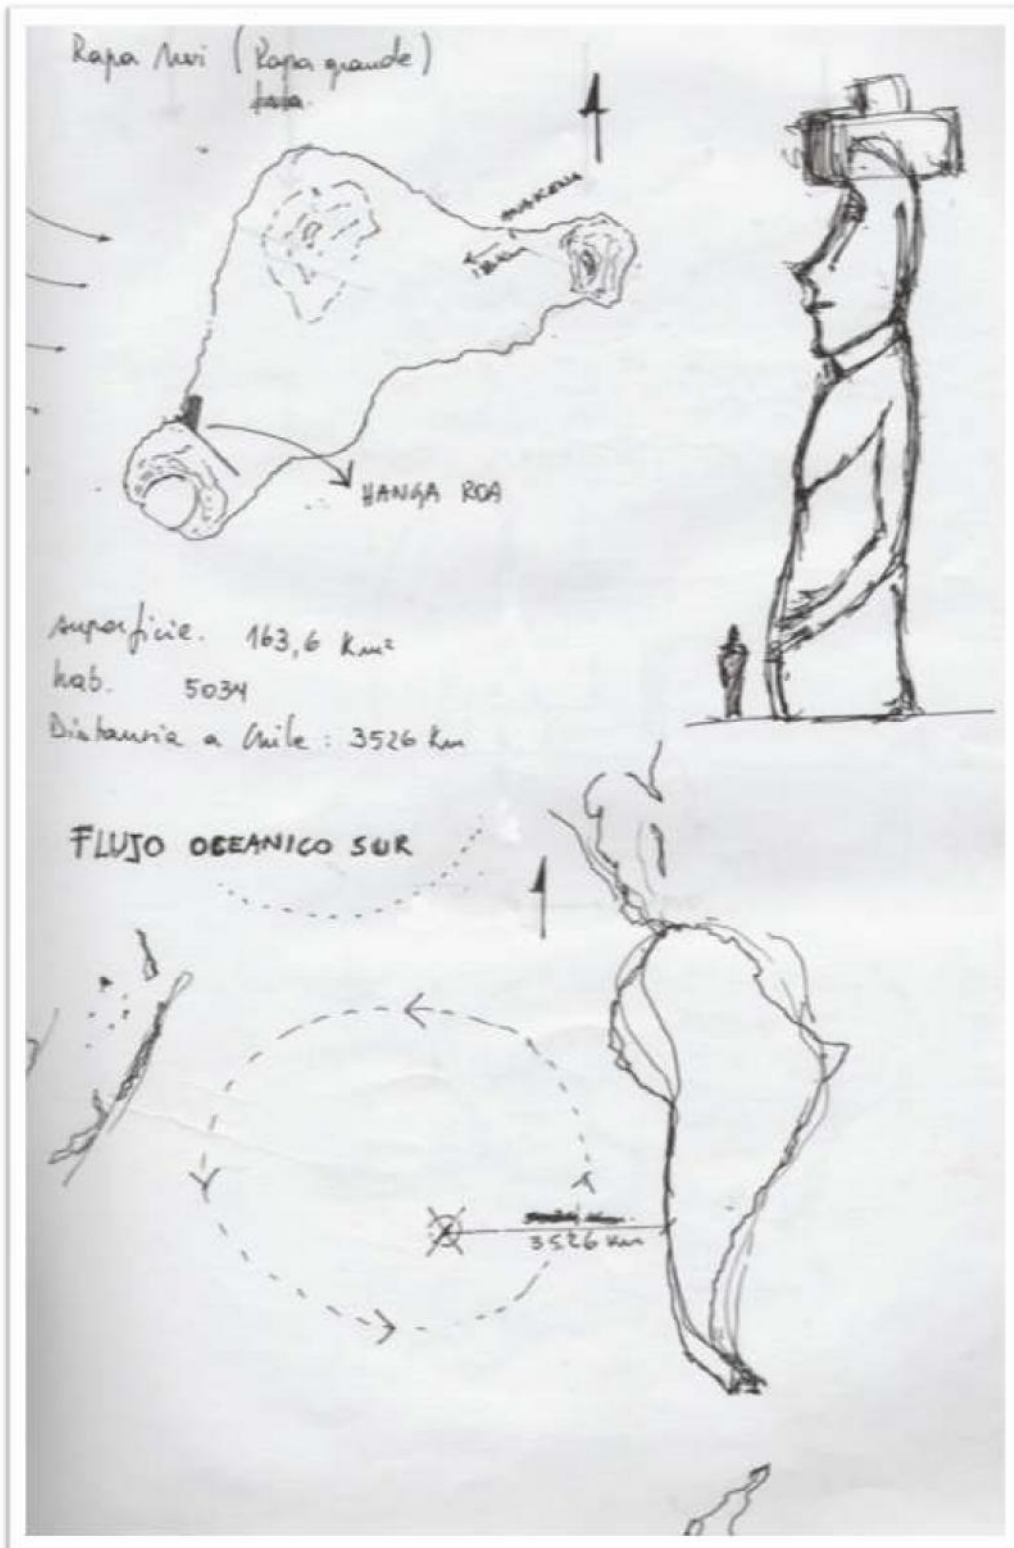 Rapa Nui (Rapa grande)
ANAKENA
HANGA ROA
superficie. 163,6 Km²
hab. 5034
Distancia a Chile : 3526 Km
FLUJO OCEANICO SUR
3526 Km